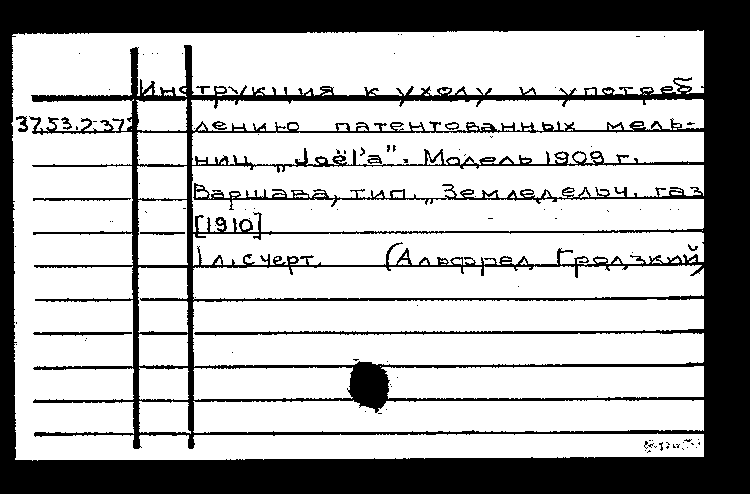 Инструкция к уходу и употреб-
37.53.2:372 лению патентованных мель-
ниц „Joël'a". Модель 1909 г.
Варшава, тип. „Земледельч. газ
[1910].
1 л. с черт. (Альфред Гродзкий)